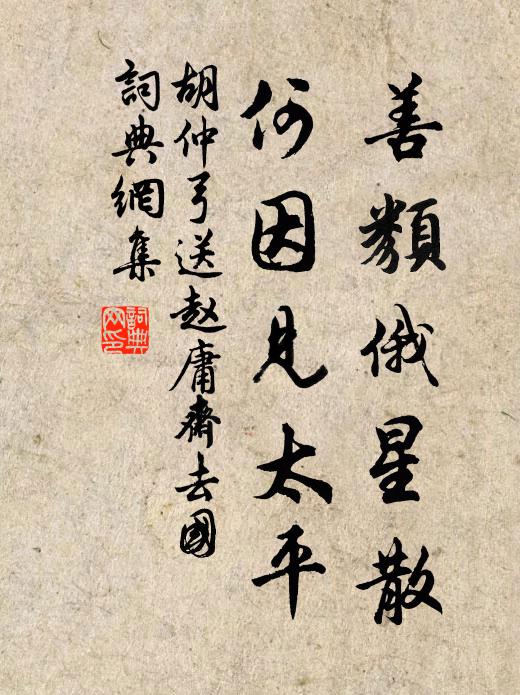 善類俄星散
何因見太平
胡仲弓送赵庸齋去國
詞典網集
詞典网印